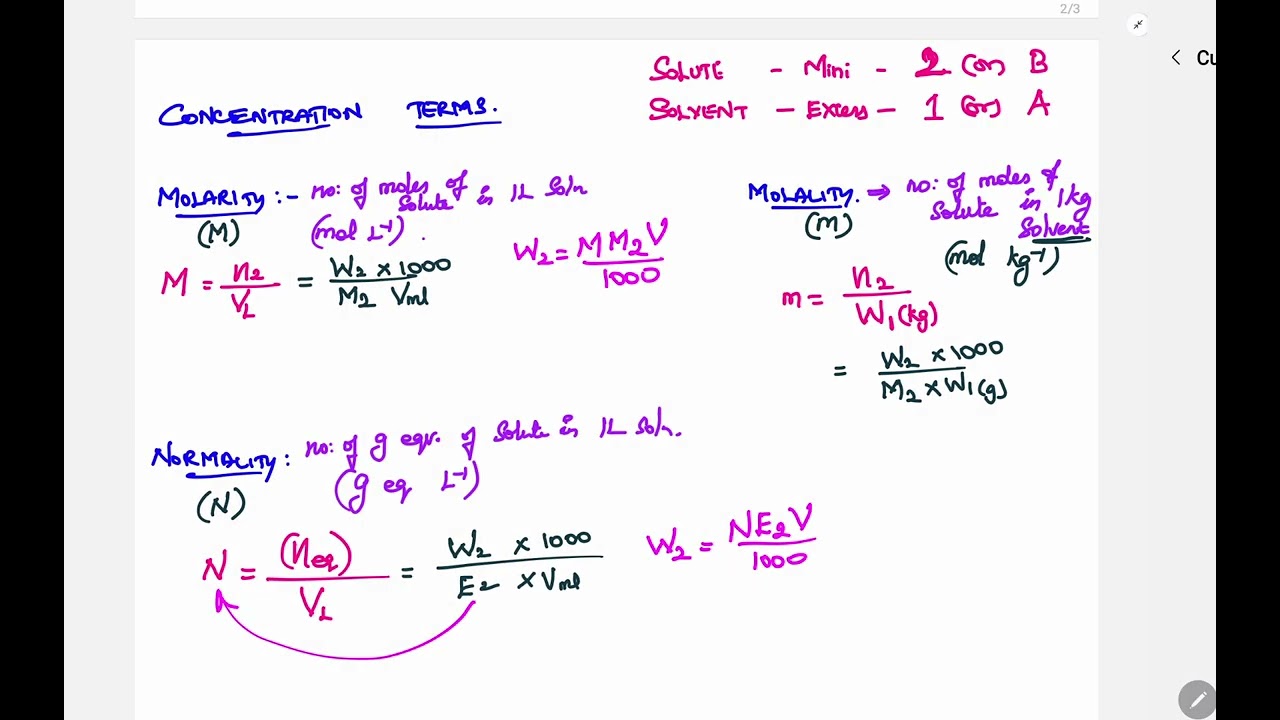 2/3
Cu
SOLUTE - Mini - 2 (or) B
SOLVENT - Excess - 1 (or) A
CONCENTRATION TERMS.
MOLARITY :- no: of moles of solute in 1L soln
(M) (mol L⁻¹).
M = n₂ / V_L = W₂ × 1000 / M₂ V_ml
W₂ = M M₂ V / 1000
MOLALITY. → no: of moles of
solute in 1kg
solvent
(m) (mol kg⁻¹)
m = n₂ / W₁(kg)
= W₂ × 1000 / M₂ × W₁(g)
NORMALITY : no: of g eqv. of solute in 1L soln.
(N) (g eq L⁻¹)
N = (n_eq) / V_L = W₂ × 1000 / E₂ × V_ml
W₂ = N E₂ V / 1000